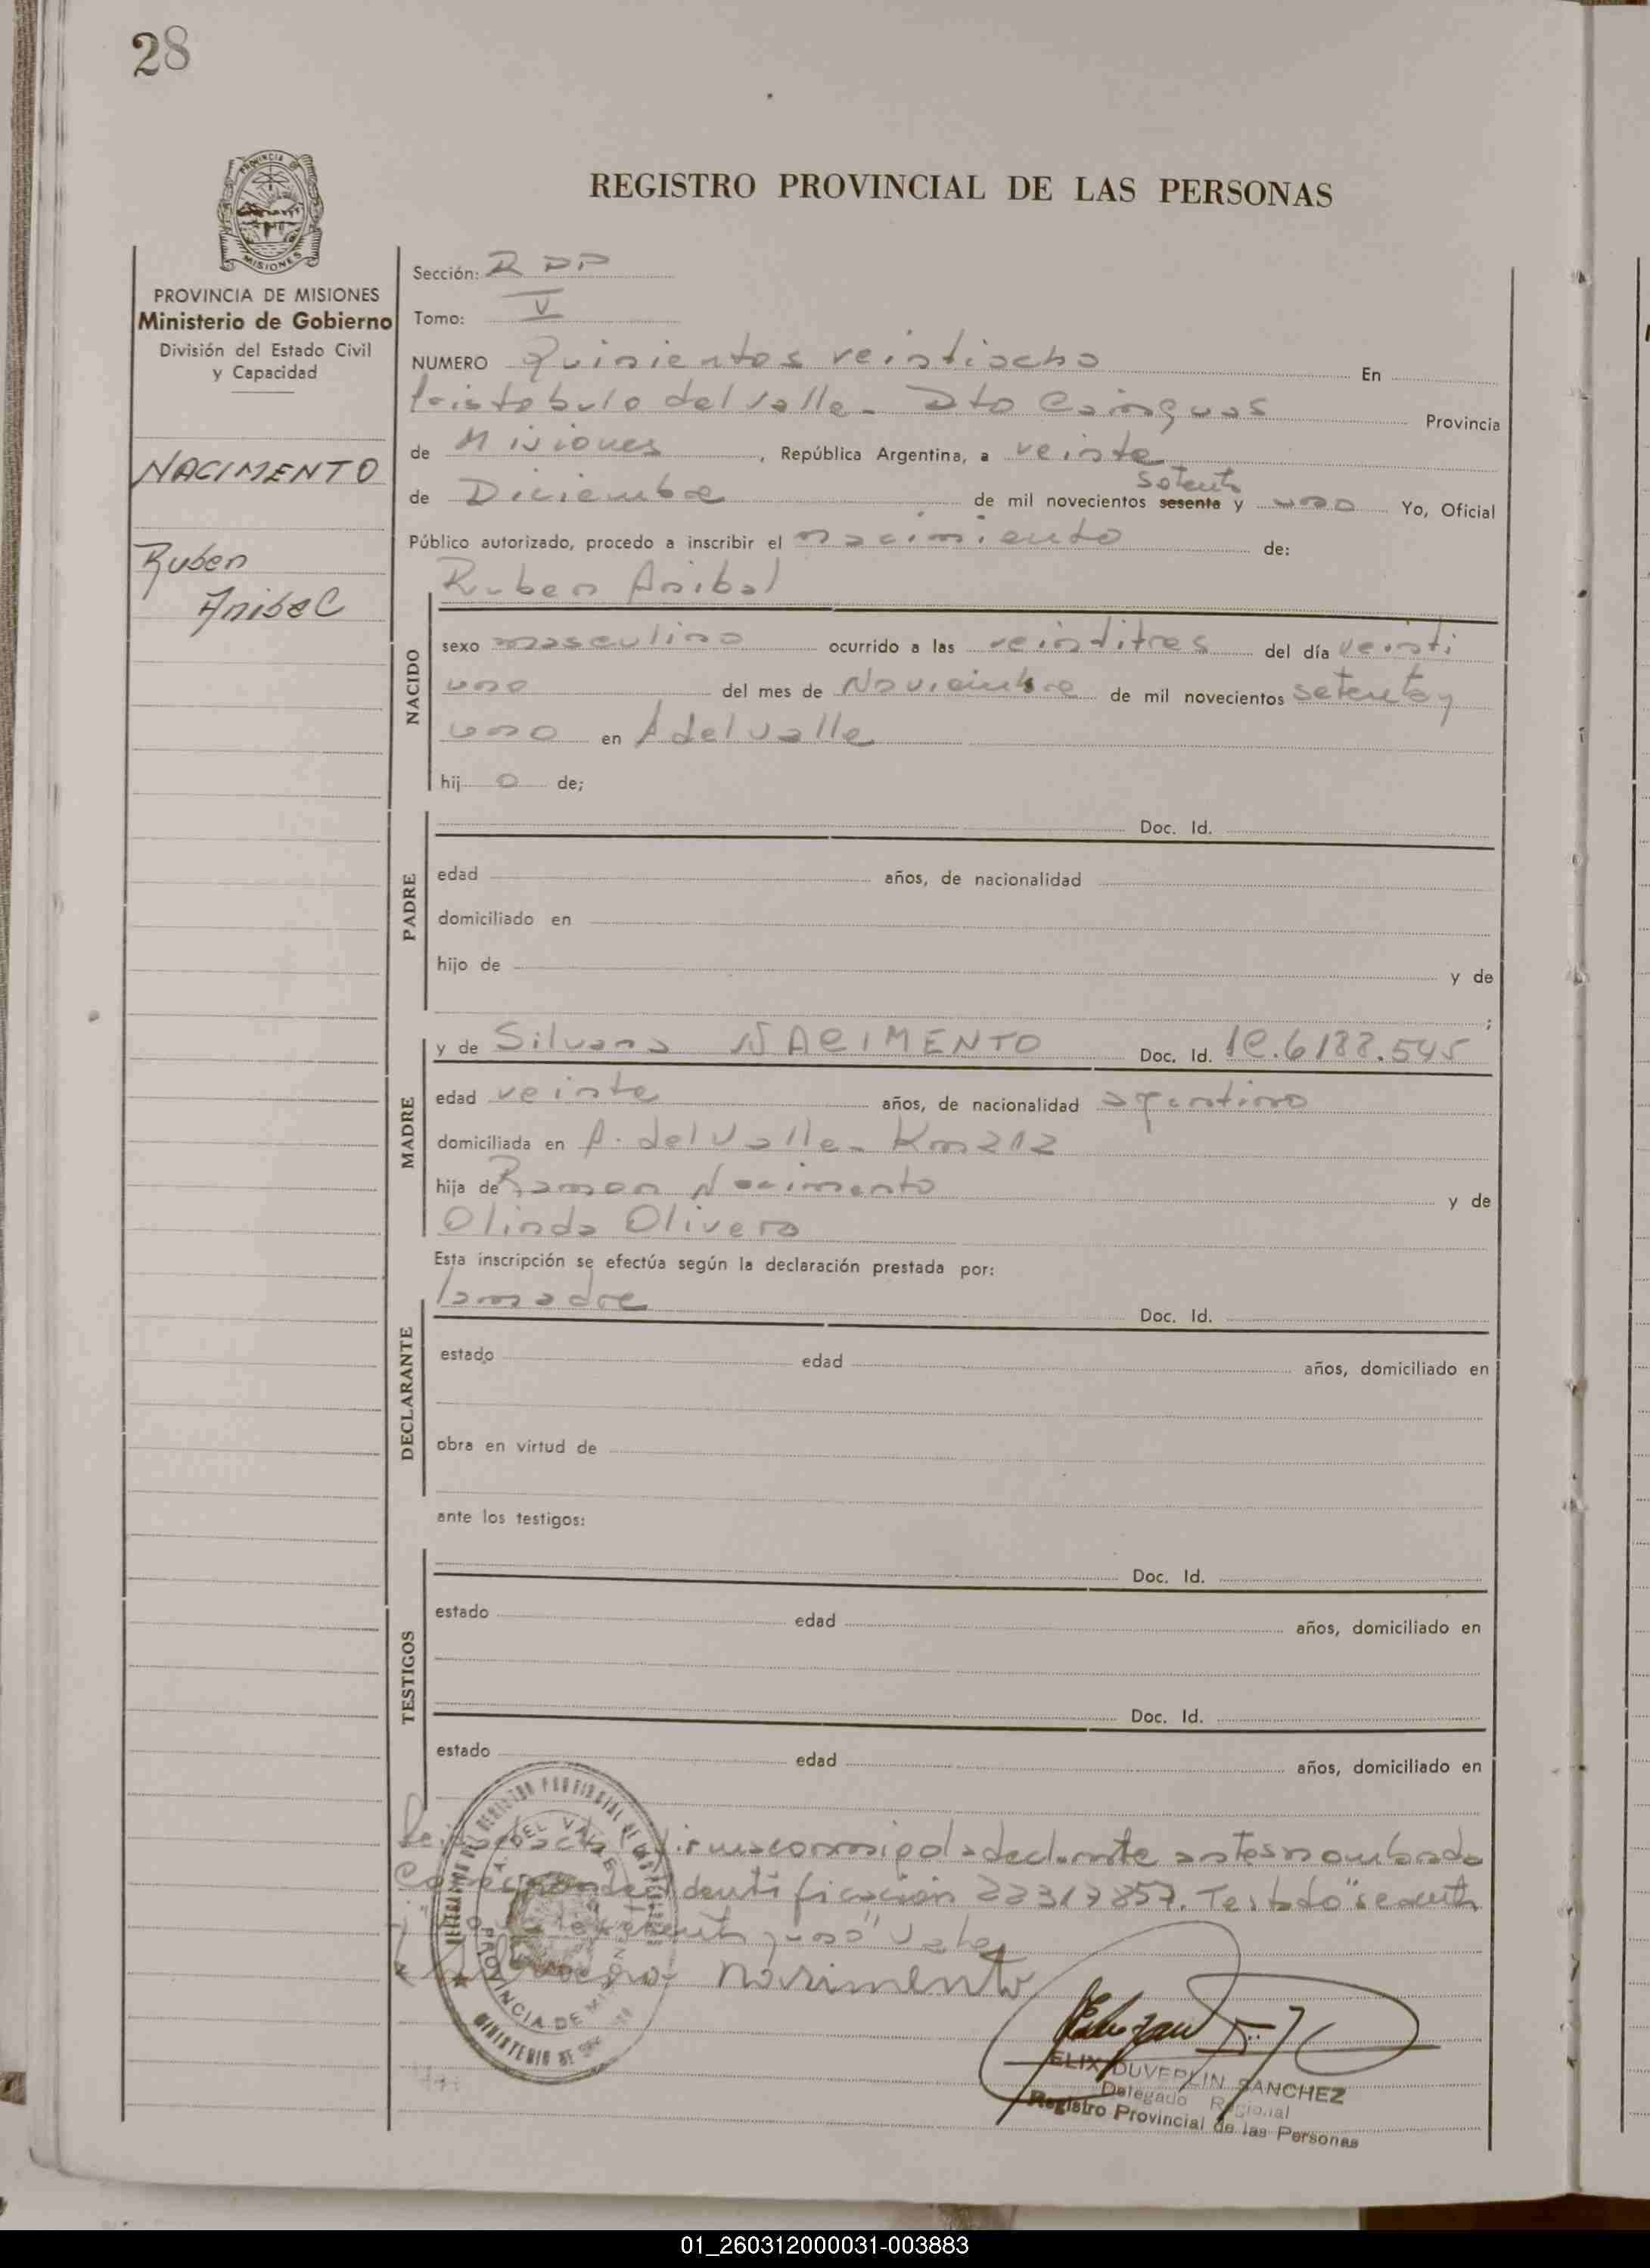 28
REGISTRO PROVINCIAL DE LAS PERSONAS
PROVINCIA DE MISIONES
Ministerio de Gobierno
División del Estado Civil
y Capacidad
NACIMENTO
Ruben
Anibal
Sección: R PP
Tomo: V
NUMERO Quinientos veintiocho En
Aristobulo del Valle - Dto Cainguas Provincia
de Misiones, República Argentina, a veinte
setenta
de Diciembre de mil novecientos sesenta y uno Yo, Oficial
Público autorizado, procedo a inscribir el nacimiento de:
Ruben Anibal
NACIDO
sexo masculino ocurrido a las veintitres del día veinti
uno del mes de Noviembre de mil novecientos setenta y
uno en A del Valle
hij o de;
PADRE
Doc. Id.
edad años, de nacionalidad
domiciliado en
hijo de y de
;
MADRE
y de Silvana NACIMENTO Doc. Id. 6188.545
edad veinte años, de nacionalidad argentina
domiciliada en A. del Valle - Km 212
hija de Ramon Nacimento y de
Olinda Olivera
Esta inscripción se efectúa según la declaración prestada por:
DECLARANTE
la madre Doc. Id.
estado edad años, domiciliado en
obra en virtud de
ante los testigos:
TESTIGOS
Doc. Id.
estado edad años, domiciliado en
Doc. Id.
estado edad años, domiciliado en
acta firma conmigo la declarante antes nombrada
Corresponde Identificación 22317857. Testado "setenta
uno" vale
Nasimento
ELIX DUVERLIN SANCHEZ
Delegado Regional
Registro Provincial de las Personas
PROVINCIA DE MISIONES
01_260312000031-003883